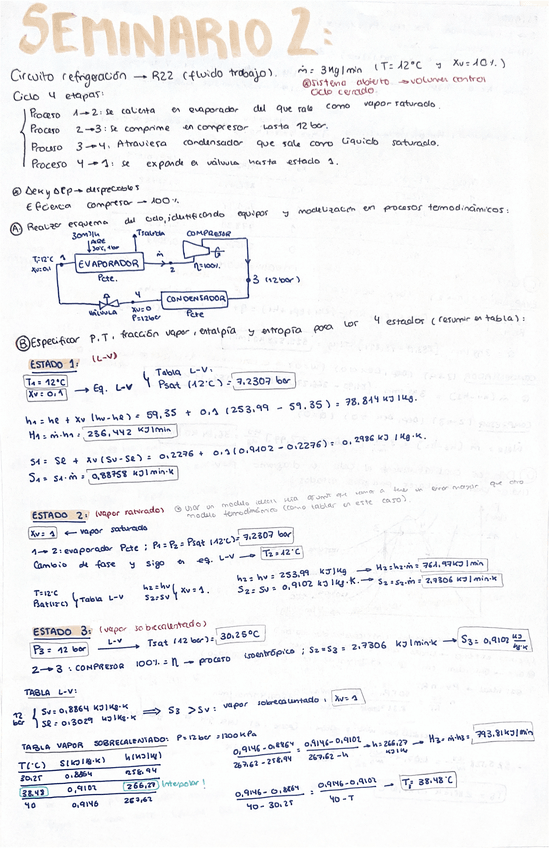 SEMINARIO 2:
Circuito refrigeración → R22 (fluido trabajo). ṁ = 3Kg/min (T=12°C y Xv=10%)
Ciclo 4 etapas:
⊛Sistema abierto → volumen control
Ciclo cerrado.
Proceso 1→2: se calienta en evaporador del que sale como vapor saturado.
Proceso 2→3: se comprime en compresor hasta 12 bar.
Proceso 3→4: Atraviesa condensador que sale como líquido saturado.
Proceso 4→1: se expande en válvula hasta estado 1.
⊛ ΔEk y ΔEp → despreciables
Eficiencia compresor → 100%.
Ⓐ Realizar esquema del ciclo, identificando equipos y modelización en procesos termodinámicos:
30m³/h
AIRE
30°C, 1bar
Tsalida
COMPRESOR
T=12°C
Xv=0.1
1
EVAPORADOR
Pcte.
ṁ
2
η=100%
3 (12bar)
VÁLVULA
4
Xv=0
P=12bar
CONDENSADOR
Pcte
Ⓑ Especificar P, T, fracción vapor, entalpía y entropía para los 4 estados (resumir en tabla):
ESTADO 1: (L-V)
T1 = 12°C
Xv = 0,1
→ Eq. L-V
Tabla L-V.
Psat (12°C) = 7,2307 bar
h1 = he + Xv (hv-he) = 59,35 + 0,1 (253,99 - 59,35) = 78,814 KJ/Kg.
H1 = ṁ·h1 = 236,442 KJ/min
S1 = Se + Xv (Sv-Se) = 0,2276 + 0,1(0,9102 - 0,2276) = 0,2986 KJ/Kg·K.
S1 = S1·ṁ = 0,88758 KJ/min·K
ESTADO 2: (vapor saturado)
Xv = 1 ← vapor saturado
1→2: evaporador Pcte; P1=P2=Psat (12°C) = 7,2307 bar
Cambio de fase y sigo en eq. L-V → T2 = 12°C
T=12°C
Psat(12°C)
Tabla L-V
h2=hv
S2=Sv
Xv=1.
h2 = hv = 253,99 KJ/Kg → H2 = h2·ṁ = 761,97KJ/min
S2 = Sv = 0,9102 KJ/Kg·K. → S2 = S2·ṁ = 2,7306 KJ/min·K
ESTADO 3: (vapor sobrecalentado)
P3 = 12 bar L-V → Tsat (12bar) = 30,25°C
2→3: COMPRESOR 100% = η → proceso isoentrópico; S2=S3 = 2,7306 KJ/min·K → S3 = 0,9102 KJ/Kg·K
TABLA L-V:
12 bar
Sv = 0,8864 KJ/Kg·K
Se = 0,3029 KJ/Kg·K
⟹ S3 > Sv: vapor sobrecalentado, Xv=1
TABLA VAPOR SOBRECALENTADO: P=12bar=1200KPa
T(°C) S(KJ/Kg·K) h(KJ/Kg)
30,25 0,8864 258,94
38,48 0,9102 266,27 Interpolar!
40 0,9146 267,62
(0,9146-0,8864)/(267,62-258,94) = (0,9146-0,9102)/(267,62-h) → h=266,27 KJ/Kg → H3=ṁ·h3 = 793,81KJ/min
(0,9146-0,8864)/(40-30,25) = (0,9146-0,9102)/(40-T) → T3 = 38,48°C